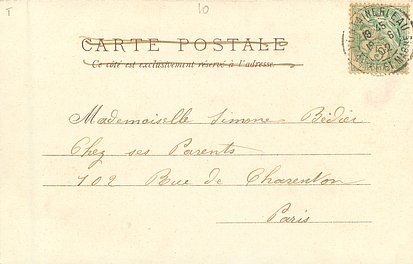 T
10
CARTE POSTALE
Ce côté est exclusivement réservé à l'adresse.
18 45
02
Mademoiselle Simone Bédier
Chez ses Parents
102 Rue de Charenton
Paris